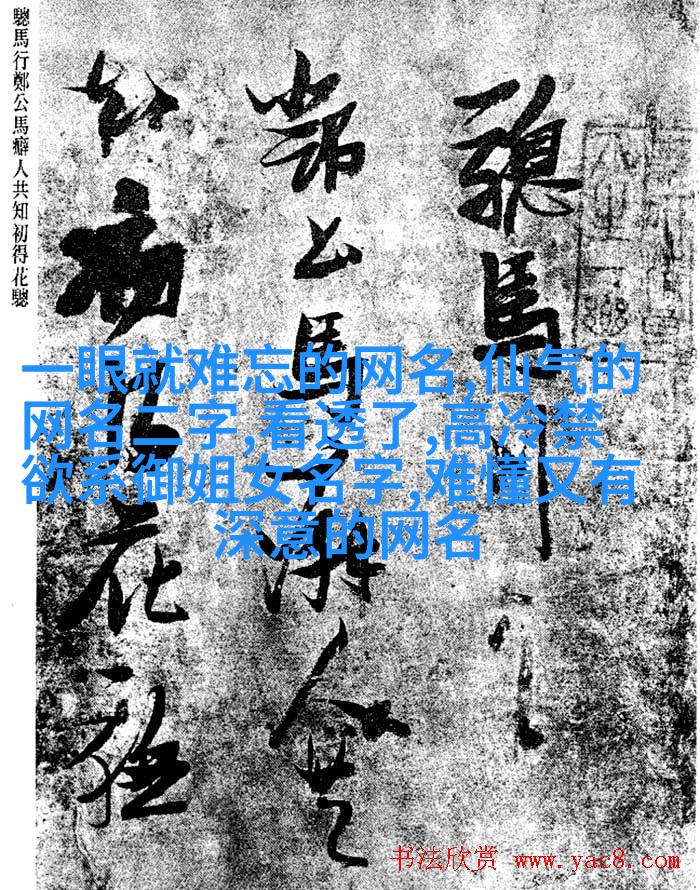 驄馬行
鄭公馬癖人共
知初得花驄
驄馬行鄭公馬癖人共知初得花驄
一眼就难忘的网名,仙气的
网名二字,看透了,高冷禁
欲系御姐女名字,难懂又有
深意的网名
书法欣赏 www.yac8.com